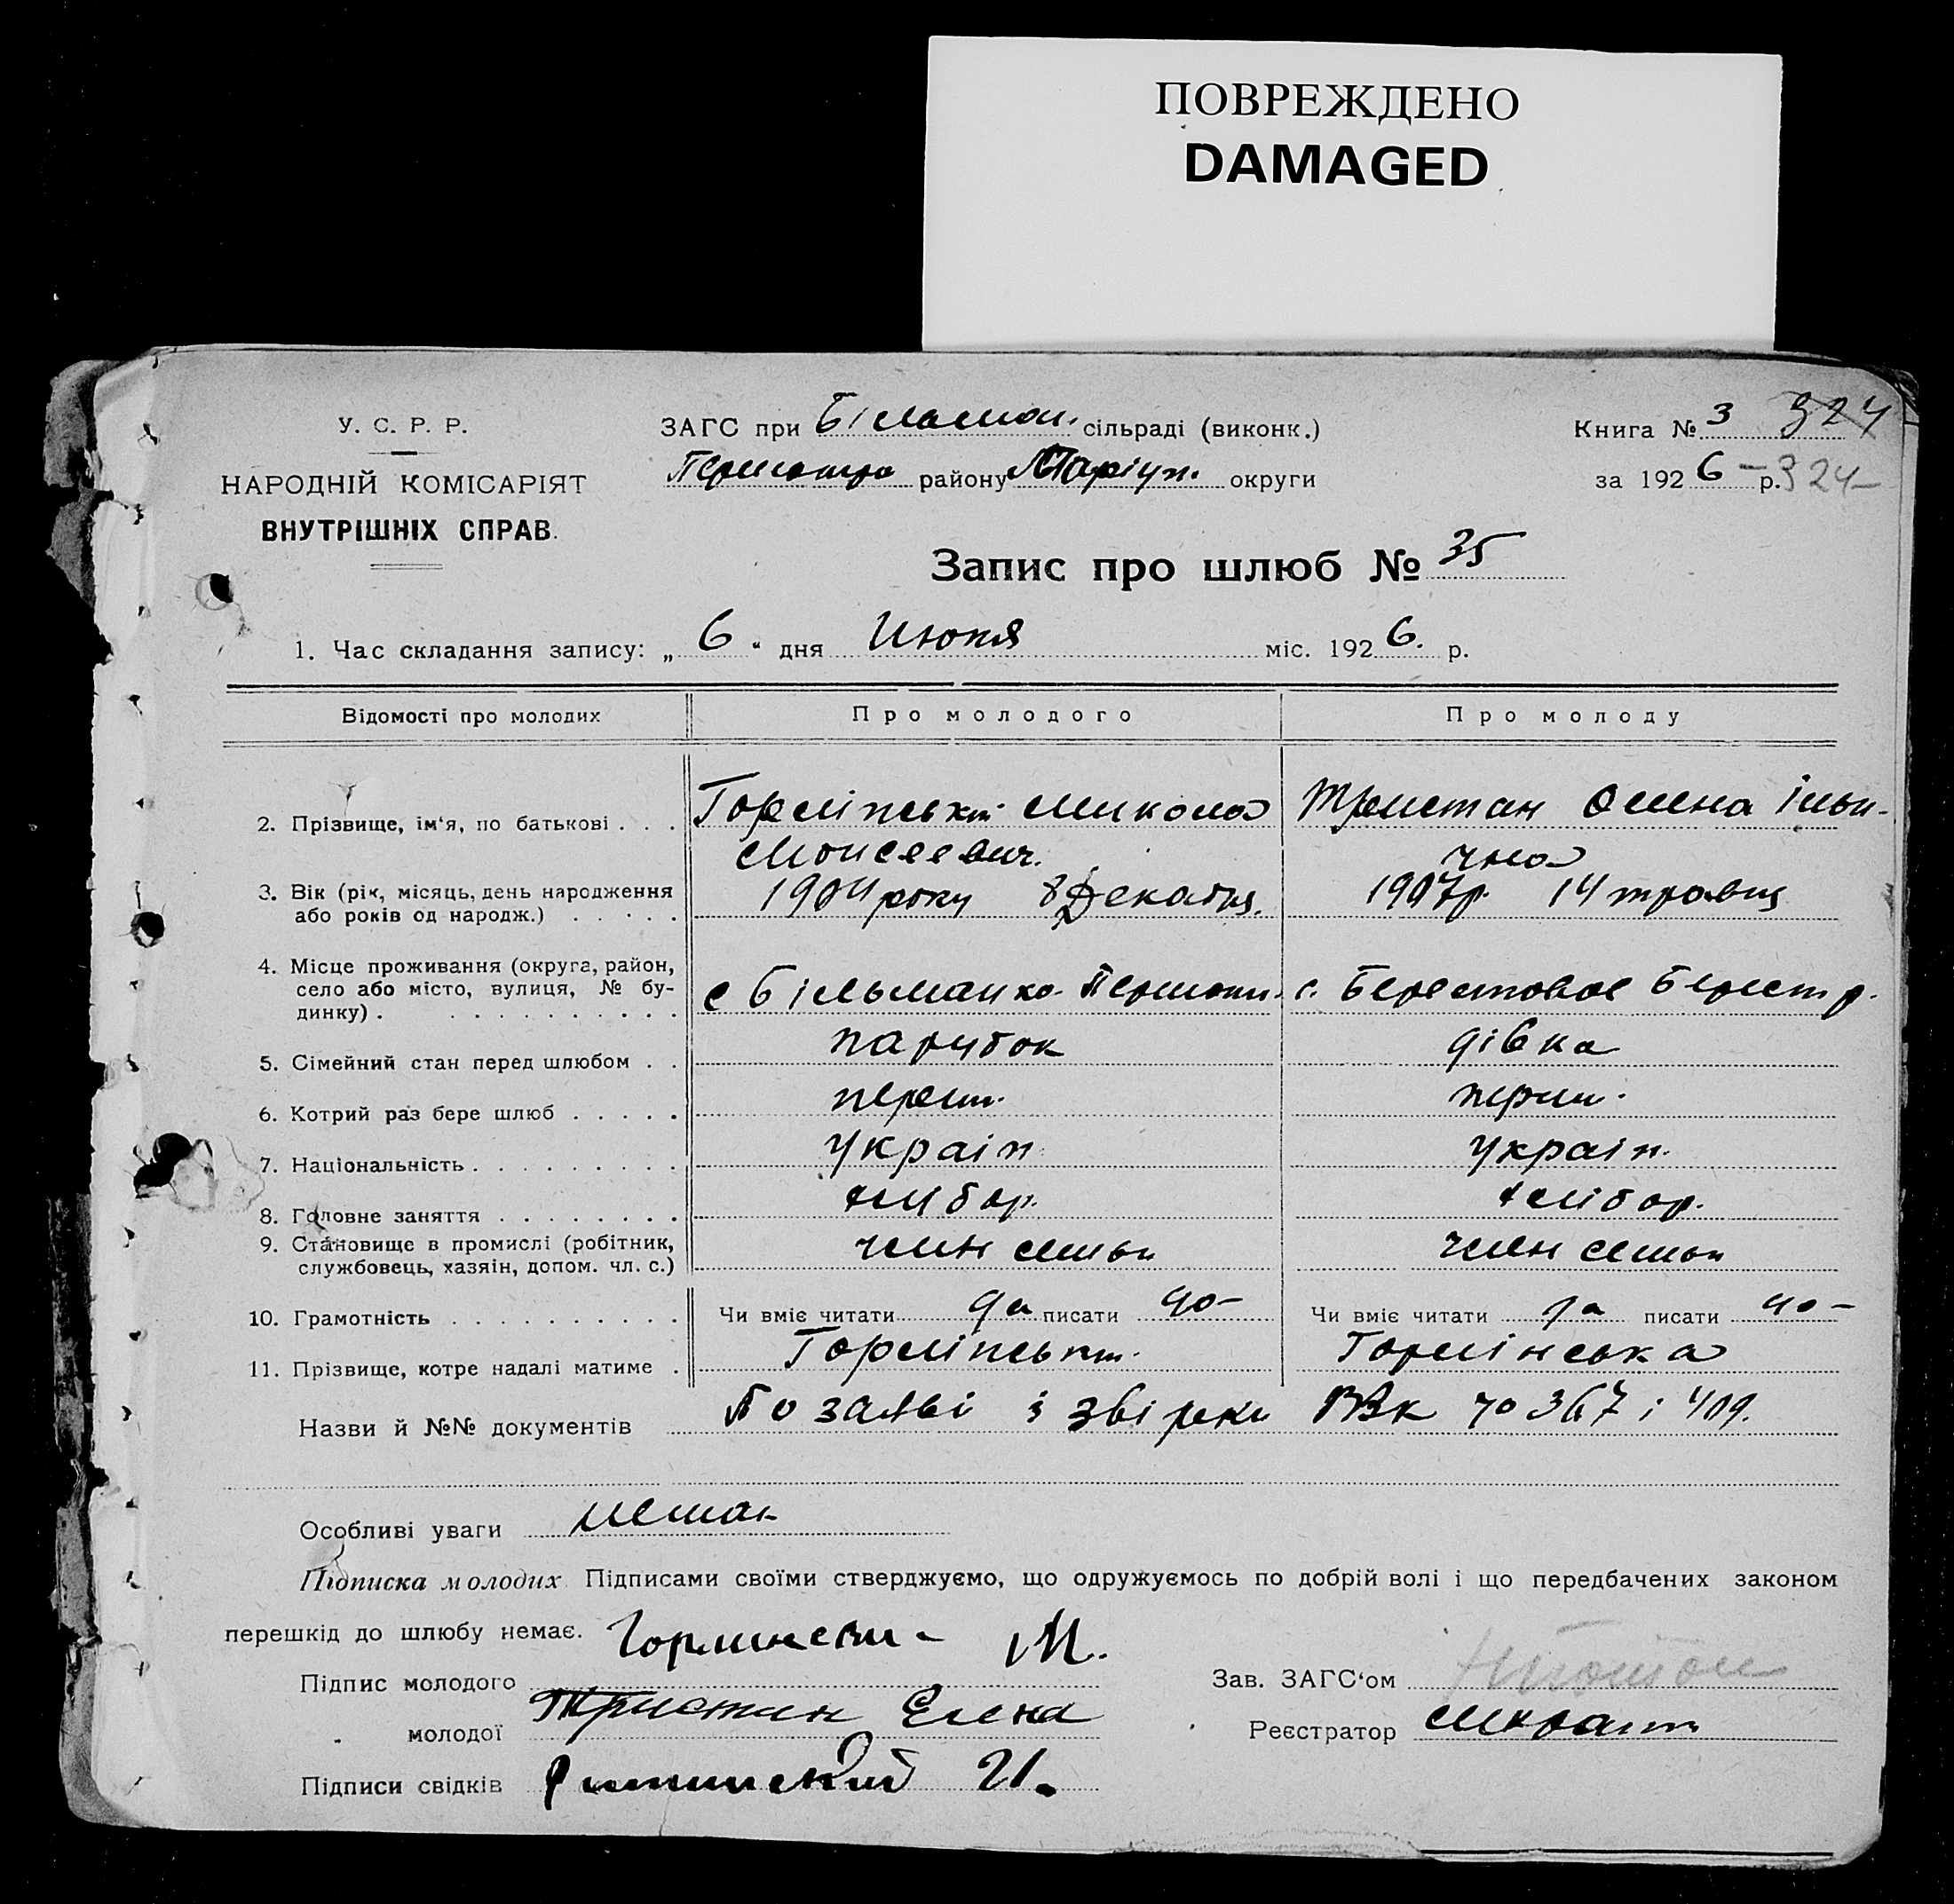 ПОВРЕЖДЕНО
DAMAGED
У. С. Р. Р.
НАРОДНІЙ КОМІСАРІЯТ
ВНУТРІШНІХ СПРАВ.
ЗАГС при Більман. сільраді (виконк.)
району Маріуп. округи
Книга № 3 324
за 1926 р. 324
Запис про шлюб № 35
1. Час складання запису: „ 6 " дня Июня міс. 1926. р.
Відомості про молодих Про молодого Про молоду
2. Прізвище, ім'я, по батькові . . . Горлінський Микола Тристан Олена Ільи-
Моисеевич. чна
3. Вік (рік, місяць, день народження 1904 року 8 Декабря. 1907р. 14 травня
або років од народж.) . . . . .
4. Місце проживання (округа, район,
село або місто, вулиця, № бу- с Більманка Першотр. с. Берестовое Берест р.
динку) . . . . . . . . . . .
5. Сімейний стан перед шлюбом . . парубок дівка
6. Котрий раз бере шлюб . . . . . перш. перш.
7. Національність . . . . . . . . . україн. україн.
8. Головне заняття . . . . . . . . хлібор. хлібор.
9. Становище в промислі (робітник, член семьи член семьи
службовець, хазяін, допом. чл. с.)
10. Грамотність . . . . . . . . . . Чи вміє читати да писати до- Чи вміє читати да писати до-
11. Прізвище, котре надалі матиме . Горлінський. Горлінська
Назви й №№ документів По заяві і звірки РВК № 367 і 409.
Особливі уваги немає
Підписка молодих Підписами своїми стверджуємо, що одружуємось по добрій волі і що передбачених законом
перешкід до шлюбу немає.
Підпис молодого Горлински- М.
молодої Тристан Елена
Зав. ЗАГС'ом
Реєстратор
Підписи свідків И.